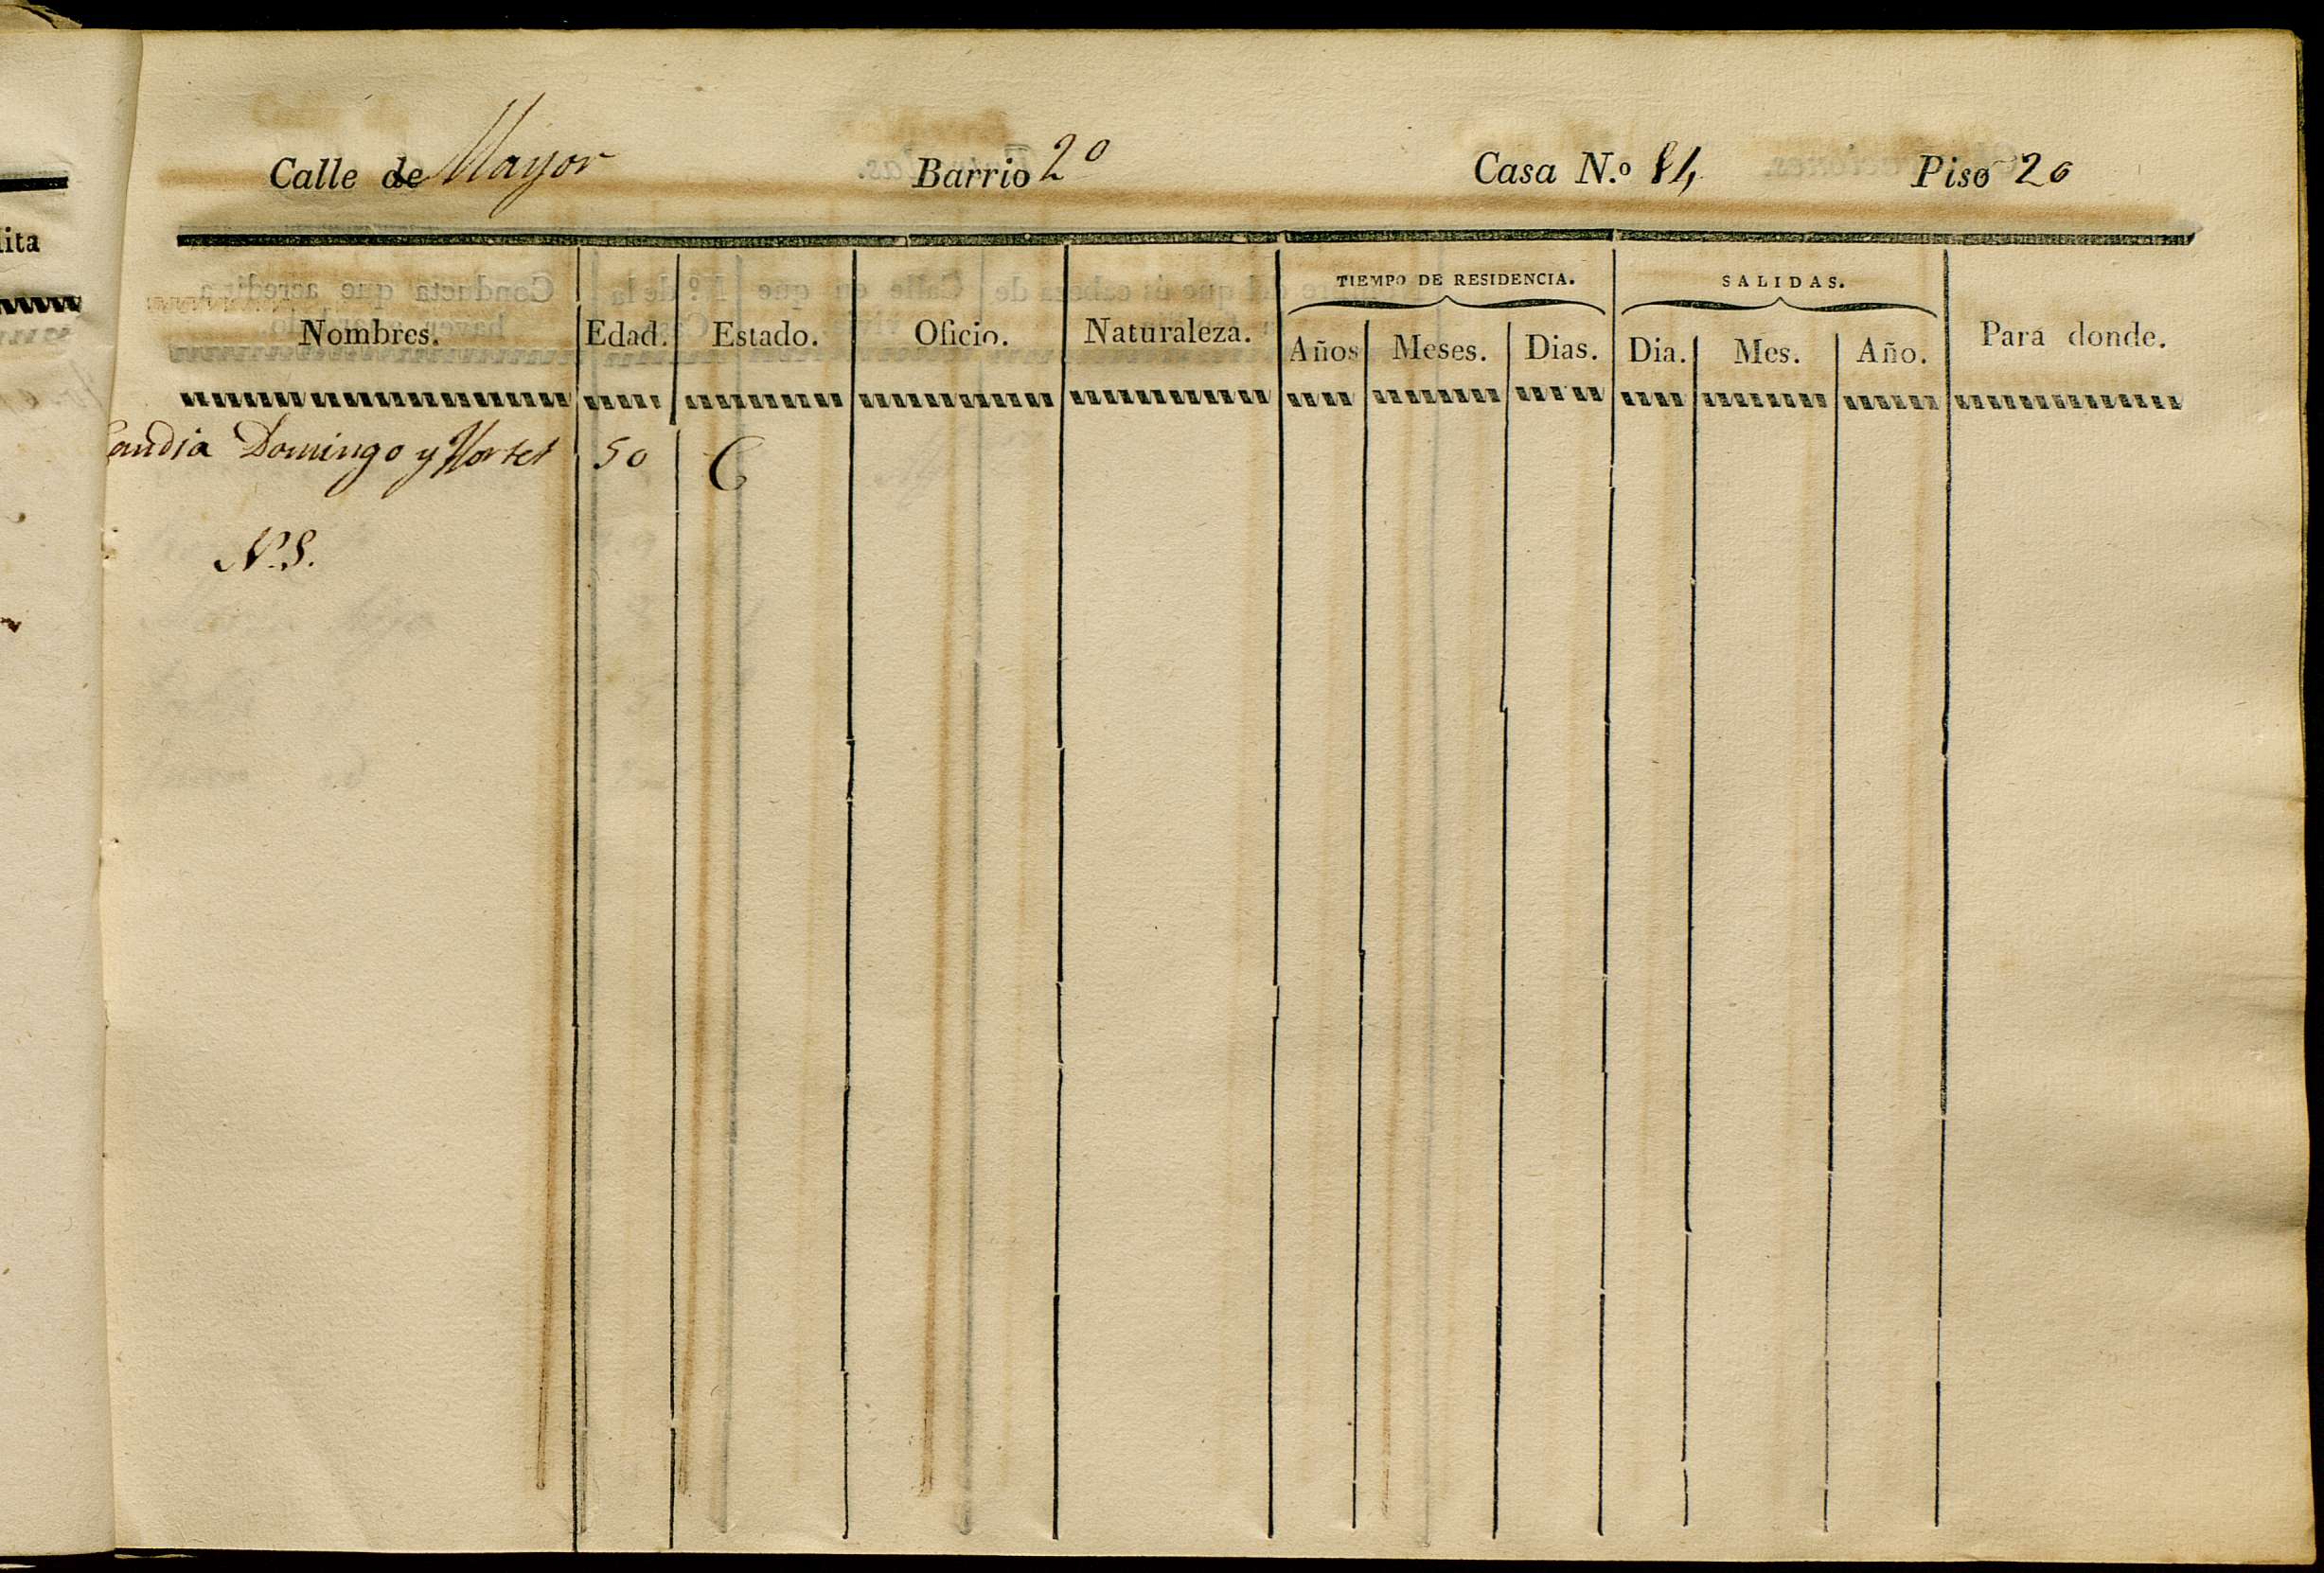 Calle de Mayor Barrio 2º Casa N.º 84, Piso 2º
TIEMPO DE RESIDENCIA. SALIDAS.
Nombres. Edad. Estado. Oficio. Naturaleza. Años Meses. Dias. Dia. Mes. Año. Para donde.
andia Domingo y Hortet 50 C
N.S.
lita